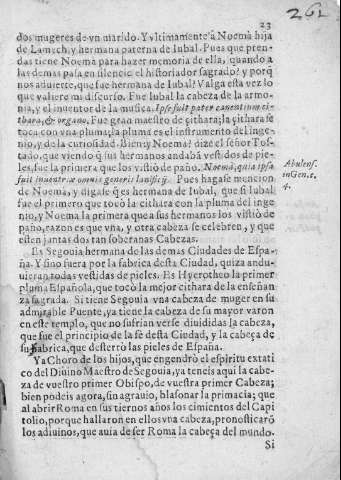 23
261
dos mugeres de vn marido. Y vltimamente à Noemà hija
de Lamech, y hermana paterna de Iubal. Pues que pren-
das tiene Noemà para hazer memoria de ella, quando a
las demas pasa en silencio el historiador sagrado? y porq̃
nos aduierte, que fue hermana de Iubal? Valga esta vez lo
que valiere mi discurso. Fue Iubal la cabeza de la armo-
nia, y el inuentor de la musica. Ipse fuit pater canentium ci-
thara, & organo. Fue gran maestro de çithara; la çithara se
toca con vna pluma; la pluma es el instrumento del inge-
nio, y de la curiosidad. Bien; y Noema? dize el señor Tos-
tado, que viendo q̃ sus hermanos andabā vestidos de pie-
les, fue la primera que los vistiò de paño. Noemà, quia ipsa
fuit inuentrix omnis generis lanificij. Pues hagase mencion
de Noemà, y digase q̃ es hermana de Iubal, que si Iubal
fue el primero que tocò la cithara con la pluma del inge
nio, y Noemà la primera que a sus hermanos los vistiò de
paño, razon es que vna, y otra cabeza se celebren, y que
esten juntas dos tan soberanas Cabezas.
Abulens.
in Gen. c.
4.
Es Segouia hermana de las demas Ciudades de Espa-
ña. Y sino fuera por la fabrica desta Ciudad, quiza andu-
uieran todas vestidas de pieles. Es Hyerotheo la primer
pluma Española, que tocò la mejor cithara de la enseñan
za sagrada. Si tiene Segouia vna cabeza de muger en su
admirable Puente, ya tiene la cabeza de su mayor varon
en este templo, que no sufrian verse diuididas la cabeza,
que fue el principio de la fè desta Ciudad, y la cabeça de
su fabrica, que desterrò las pieles de España.
Ya Choro de los hijos, que engendrò el espiritu extati
co del Diuino Maestro de Segouia, ya teneis aqui la cabe
za de vuestro primer Obispo, de vuestra primer Cabeza;
bien podeis agora, sin agrauio, blasonar la primacia; que
al abrir Roma en sus tiernos años los cimientos del Capi
tolio, porque hallaron en ellos vna cabeza, pronosticarõ
los adiuinos, que auia de ser Roma la cabeça del mundo.
Si